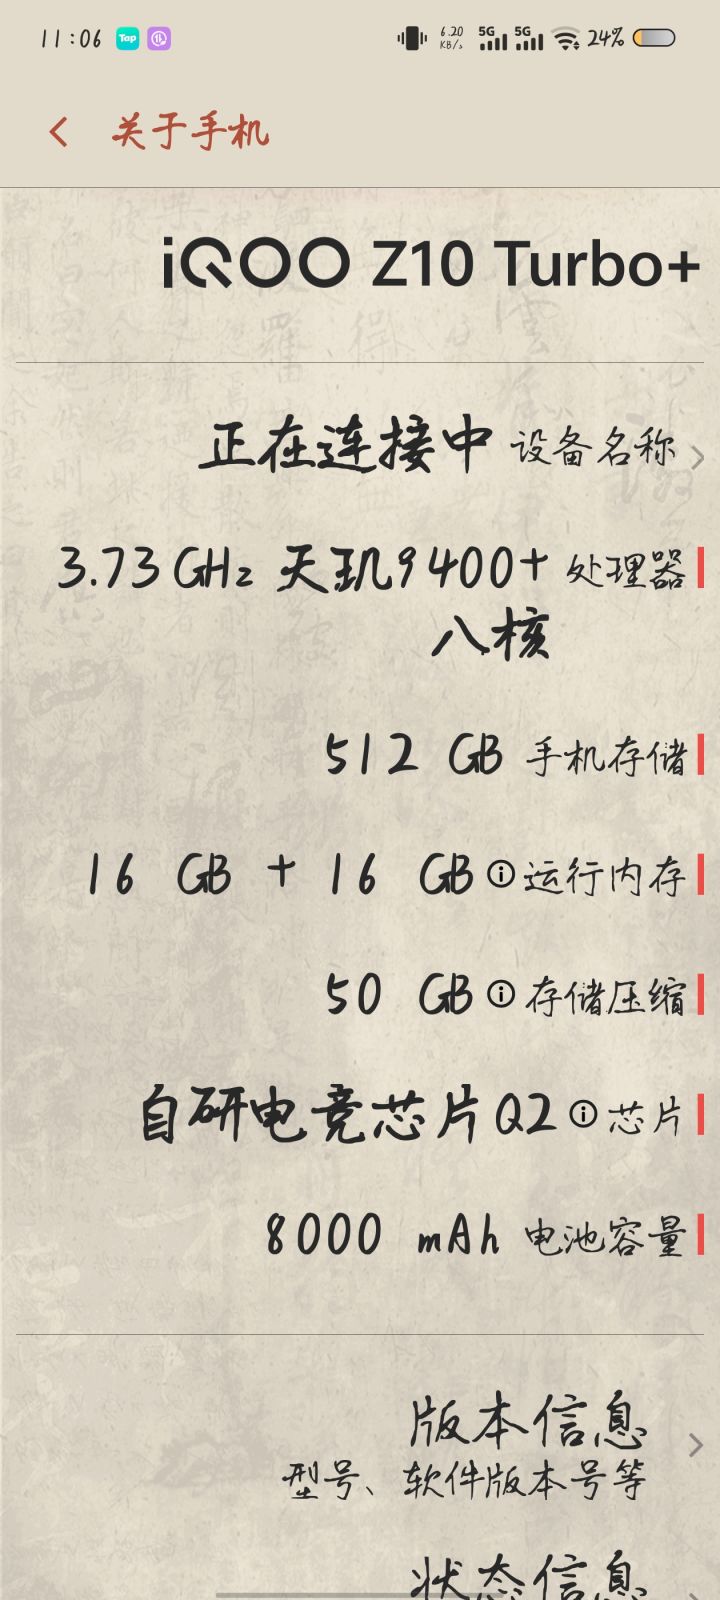 11:06 Tap 6.20 KB/s 5G 5G 24%
关于手机
iQOO Z10 Turbo+
正在连接中 设备名称
3.73 GHz 天玑9400+ 处理器
八核
512 GB 手机存储
16 GB + 16 GB 运行内存
50 GB 存储压缩
自研电竞芯片Q2 芯片
8000 mAh 电池容量
版本信息
型号、软件版本号等
状态信息